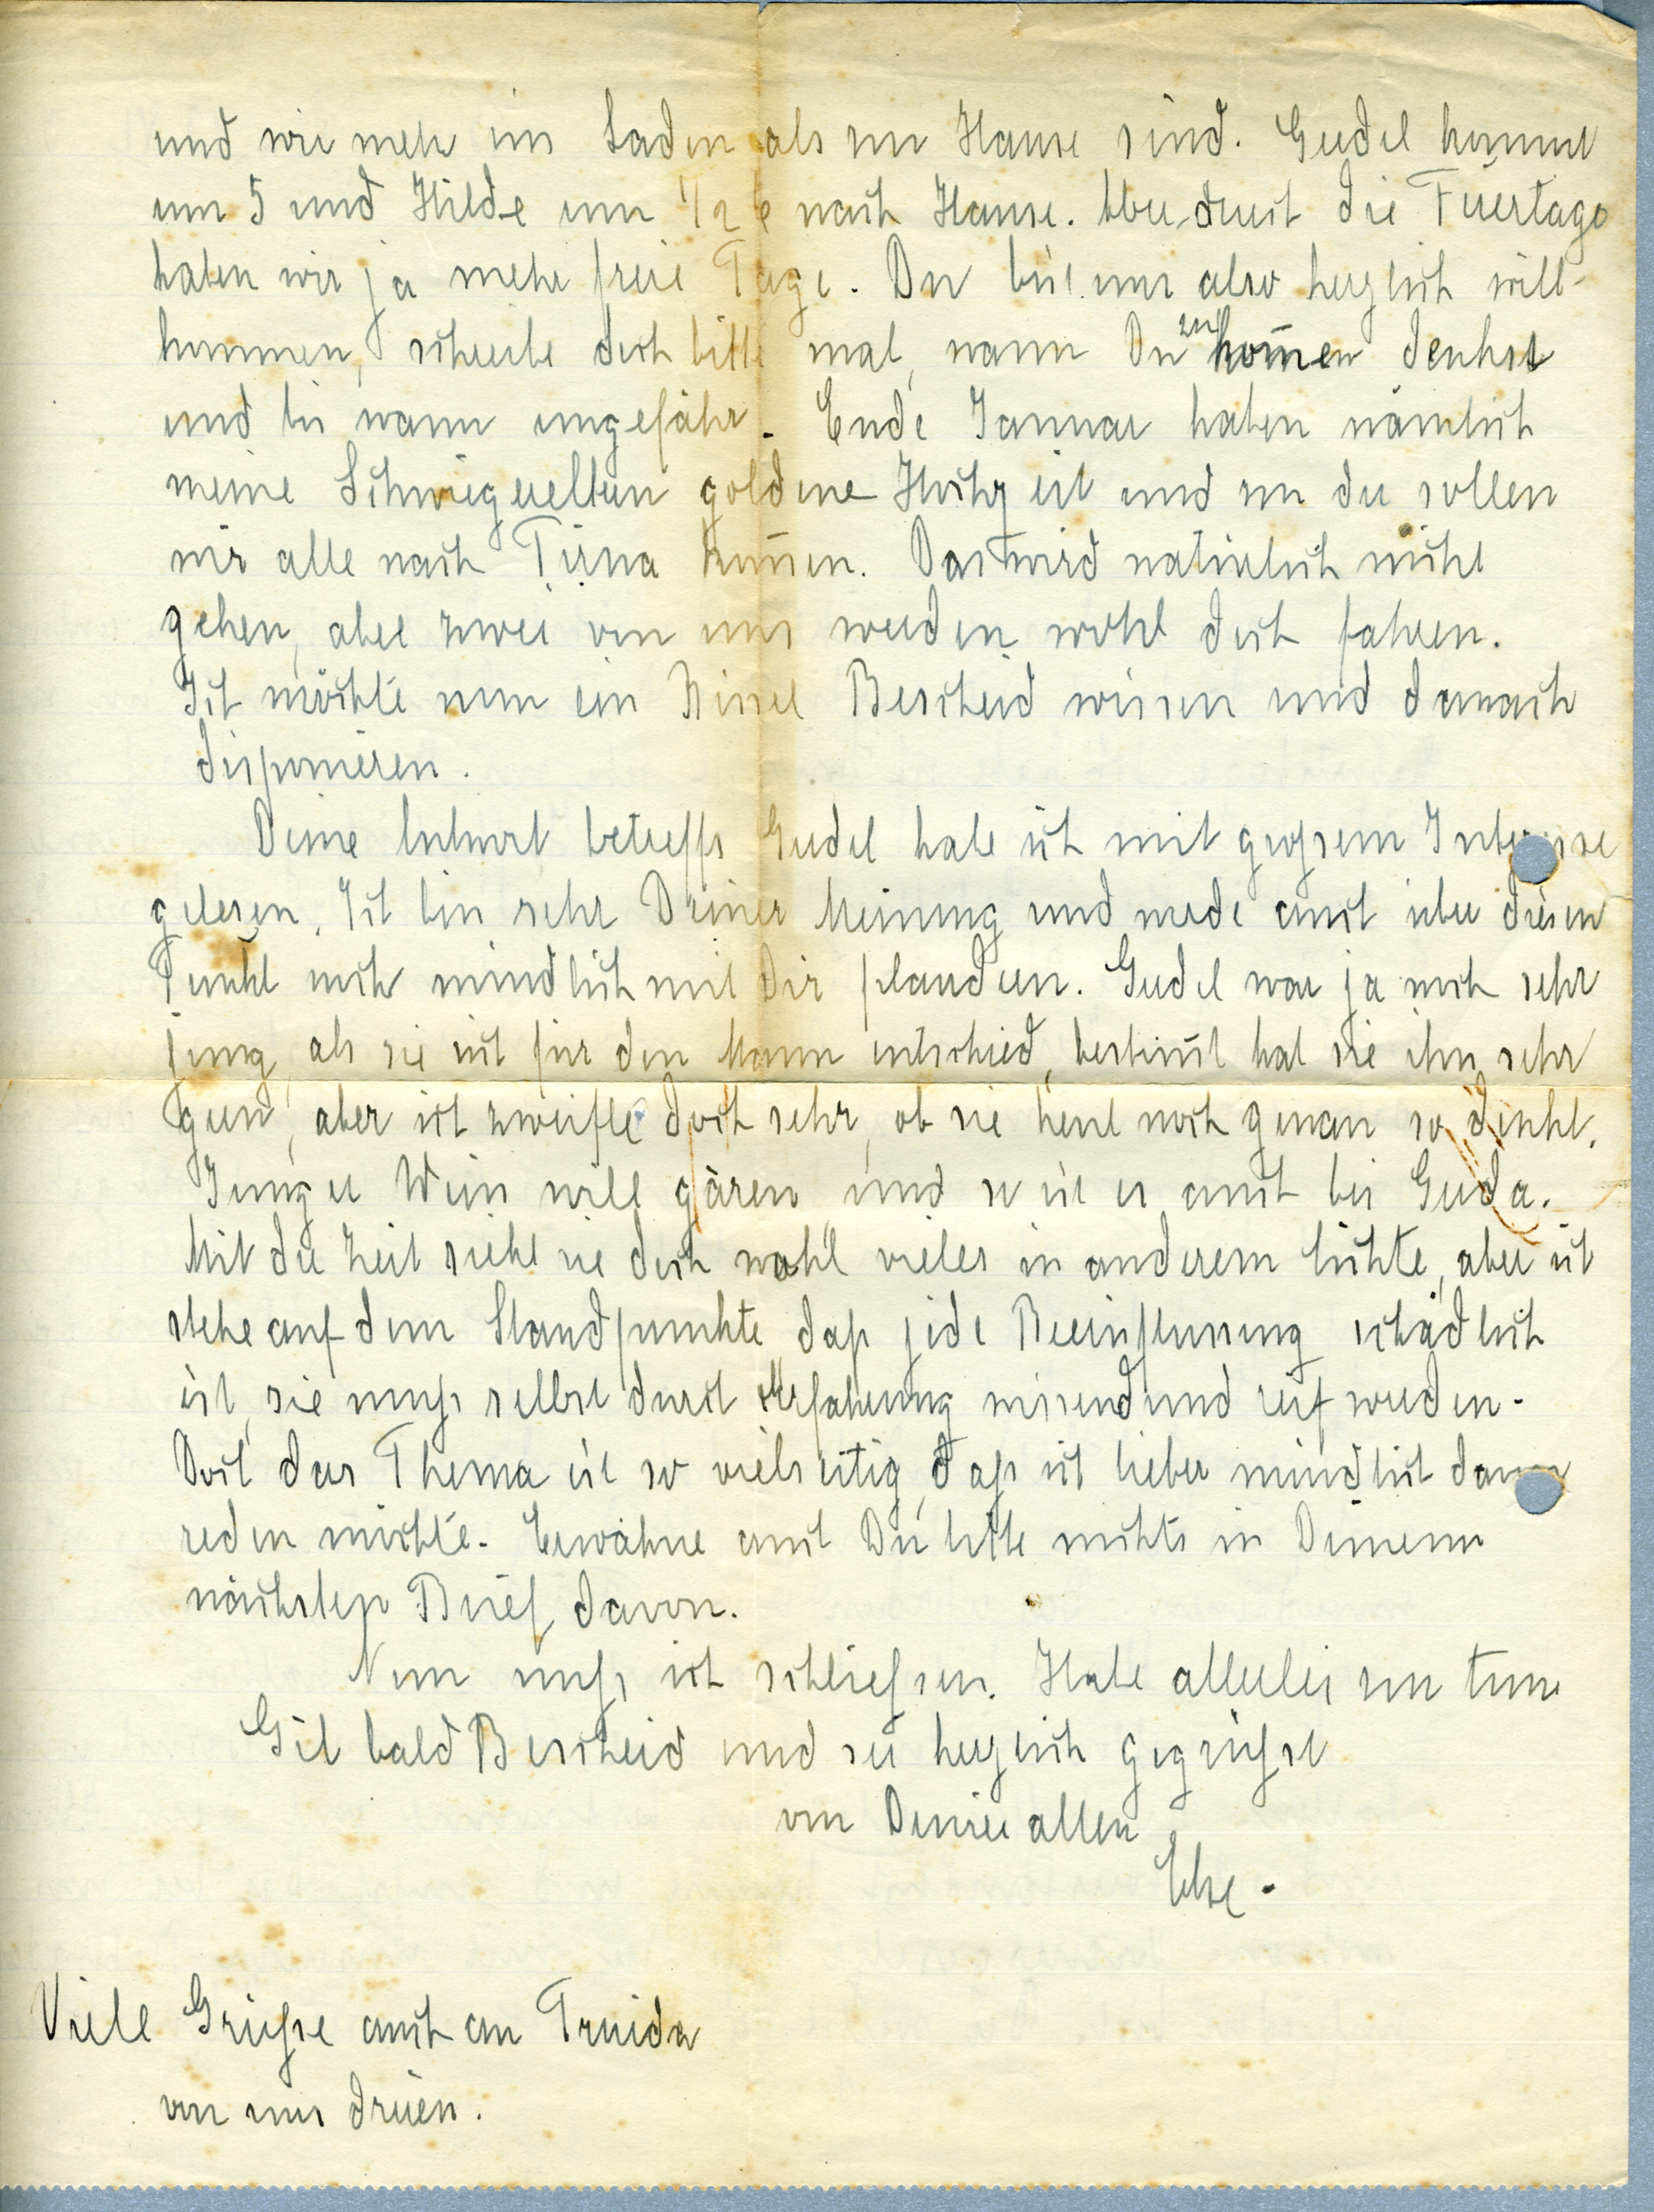 und wir mehr im Laden als zu Hause sind. Gerdel kommt
um 5 und Hilde um 1/2 6 nach Hause. Aber durch die Feiertage
haben wir ja mehr freie Tage. Du bist uns also herzlich will-
kommen, schreibe doch bitte mal, wann Du zu kom̄en denkst
und bis wann ungefähr. Ende Januar haben nämlich
meine Schwiegereltern goldene Hochzeit und zu der sollen
wir alle nach Pirna kom̄en. Das wird natürlich nicht
gehen, aber zwei von uns werden wohl doch fahren.
Ich möchte nun ein Bissel Bescheid wissen und danach
disponieren.
Deine Antwort betreffs Gerdel habe ich mit grossem Interesse
gelesen. Ich bin sehr Deiner Meinung und werde auch über diesen
Punkt noch mündlich mit Dir plaudern. Gerdel war ja noch sehr
jung, als sie sich für den Mann entschied, bestim̄t hat sie ihn sehr
gern, aber ich zweifle doch sehr, ob sie heut noch genau so denkt.
Junger Wein will gären und so ist es auch bei Gerda.
Mit der Zeit sieht sie doch wohl vieles in anderem Lichte, aber ich
stehe auf dem Standpunkte, dass jede Beeinflussung schädlich
ist, sie muss selbst durch Erfahrung wissend und reif werden.
Doch das Thema ist so vielseitig, dass ich lieber mündlich davon
reden möchte. Erwähne auch Du bitte nichts in Deinem
nächsten Brief davon.
Nun muss ich schliessen. Habe allerlei zu tun
Gib bald Bescheid und sei herzlich gegrüsst
von Deiner alten
Else.
Viele Grüsse auch an Truida
von uns dreien.